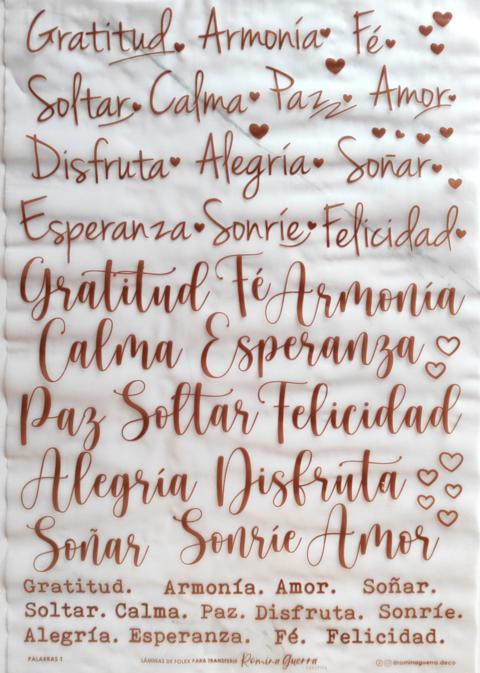 Gratitud Armonía Fé
Soltar Calma Paz Amor
Disfruta Alegría Soñar
Esperanza Sonríe Felicidad
Gratitud Fé Armonía
Calma Esperanza
Paz Soltar Felicidad
Alegría Disfruta
Soñar Sonríe Amor
Gratitud. Armonía. Amor. Soñar.
Soltar. Calma. Paz. Disfruta. Sonríe.
Alegría. Esperanza. Fé. Felicidad.
PALABRAS 1 LÁMINAS DE FOLEX PARA TRANSFERIR Romina Guerra @rominaguerra.deco